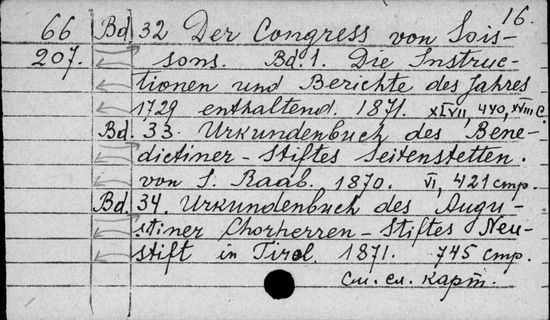 16.
66 Bd. 32 Der Congress von Sois-
207. sons. Bd. 1. Die Instruc-
tionen und Berichte des Jahres
1729 enthaltend. 1871. XLVII, 440, XVIII c.
Bd. 33. Urkundenbuch des Bene-
dictiner-Stiftes Seitenstetten.
von I. Raab. 1870. VI, 421 стр.
Bd. 34. Urkundenbuch des Augu-
stiner Chorherren-Stiftes Neu-
stift in Tirol. 1871. 745 стр.
См. сл. карт.